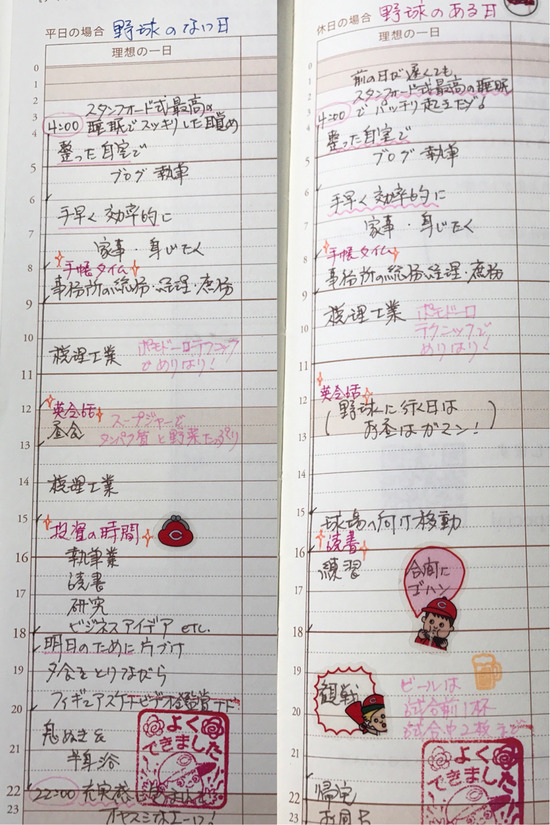 平日の場合 野球のない日
理想の一日
0
1
2
スタンフォード式最高の
3
4:00 睡眠でスッキリした目覚め
4
整った自室で
5
ブログ執筆
6
手早く効率的に
7
家事・身じたく
手帳タイム
8
事務所の総務・経理・庶務
9
10
税理士業 ポモドーロテクニック
でめりはり!
11
12
英会話 スープジャーで
昼食 タンパク質と野菜たっぷり
13
14
税理士業
15
投資の時間
16
執筆業
読書
17
研究
ビジネスアイデア etc.
18
明日のために片づけ
19
夕食をとりながら
フィギュアスケートビデオ鑑賞
20
よくできました
息ぬき&
21
半身浴
22
22:00 充実感
23
オヤスミなエーコ!
休日の場合 野球のある日
理想の一日
0
前の日が遅くても
1
スタンフォード式最高の睡眠
2
3
4:00 でパッチリ起きたゾ!
4
整った自室で
5
ブログ執筆
6
手早く効率的に
7
家事・身じたく
手帳タイム
8
事務所の総務・経理・庶務
9
税理士業 ポモドーロ
10
テクニックで
めりはり!
11
12
英会話
(野球に行く日は
お昼はガマン!)
13
14
15
球場へ向け移動
16
読書
練習
合間にゴハン
17
18
19
観戦
ビールは
試合前1杯
20
試合中2杯まで
よくできました
21
22
帰宅
23